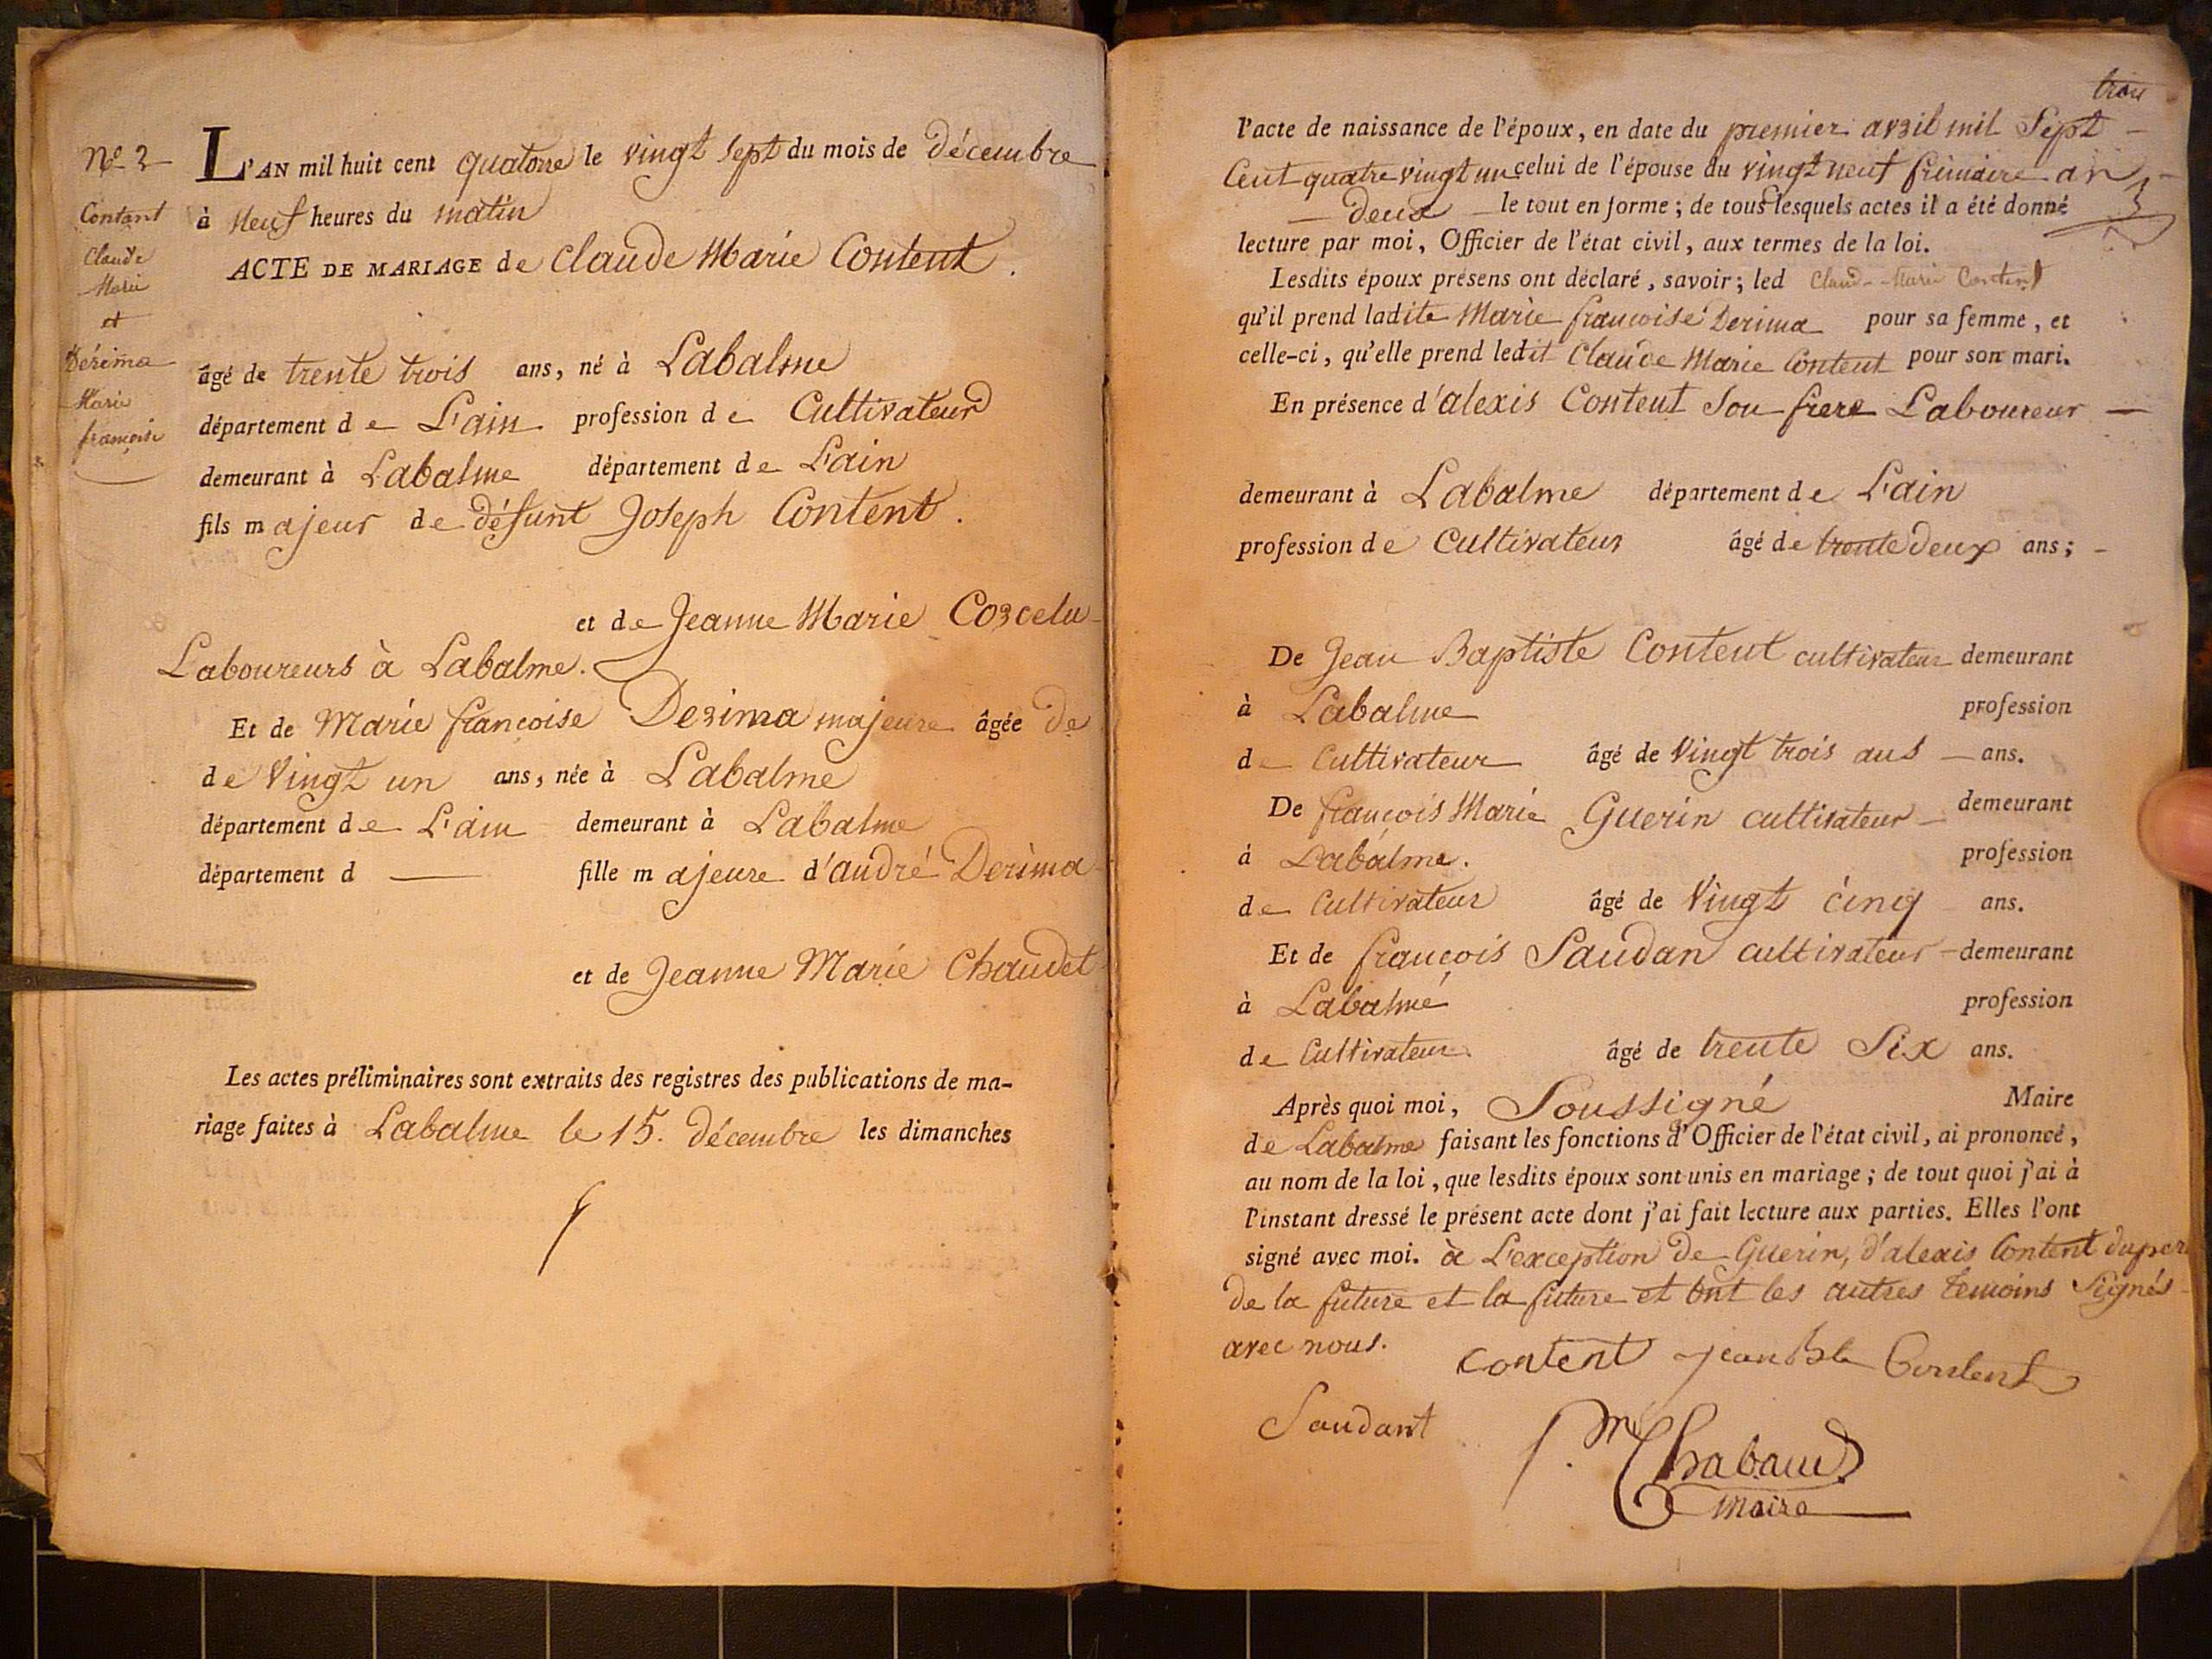 N° 2
Contant
Claude
Marie
et
Dérima
Marie
françoise
L'AN mil huit cent quatorze le vingt sept du mois de décembre
à neuf heures du matin
ACTE DE MARIAGE de Claude Marie Content.
âgé de trente trois ans, né à Labalme
département de L'ain profession de Cultivateur
demeurant à Labalme département de L'ain
fils majeur de défunt Joseph Content.
et de Jeanne Marie Corcelu
Laboureurs à Labalme.
Et de Marie françoise Derima majeure âgée de
de vingt un ans, née à Labalme
département de L'ain demeurant à Labalme
département d — fille majeure d'andré Derima
et de Jeanne Marie Chaudet
Les actes préliminaires sont extraits des registres des publications de ma-
riage faites à Labalme le 15. décembre les dimanches
trois
l'acte de naissance de l'époux, en date du premier avril mil Sept
Cent quatre vingt un celui de l'épouse du vingt neuf frimaire an
— deux — le tout en forme; de tous lesquels actes il a été donné
lecture par moi, Officier de l'état civil, aux termes de la loi.
Lesdits époux présens ont déclaré, savoir; led Claude Marie Content
qu'il prend ladite Marie françoise Derima pour sa femme, et
celle-ci, qu'elle prend ledit Claude Marie Content pour son mari.
En présence d'alexis Content Son frere Laboureur —
demeurant à Labalme département de L'ain
profession de Cultivateur âgé de trente deux ans;
De Jean Baptiste Content cultivateur demeurant
à Labalme profession
de Cultivateur âgé de vingt trois ans — ans.
De françois Marie Guerin cultivateur — demeurant
à Labalme. profession
de Cultivateur âgé de vingt cinq ans.
Et de françois Saudan cultivateur — demeurant
à Labalme profession
de Cultivateur âgé de trente Six ans.
Après quoi moi, Soussigné Maire
de Labalme faisant les fonctions d'Officier de l'état civil, ai prononcé,
au nom de la loi, que lesdits époux sont unis en mariage; de tout quoi j'ai à
l'instant dressé le présent acte dont j'ai fait lecture aux parties. Elles l'ont
signé avec moi. à L'exception de Guerin, d'alexis Content du pere
de la future et la future et ont les autres temoins Signés
avec nous.
content jean Bte Content
Saudant
Chabaud
Maire